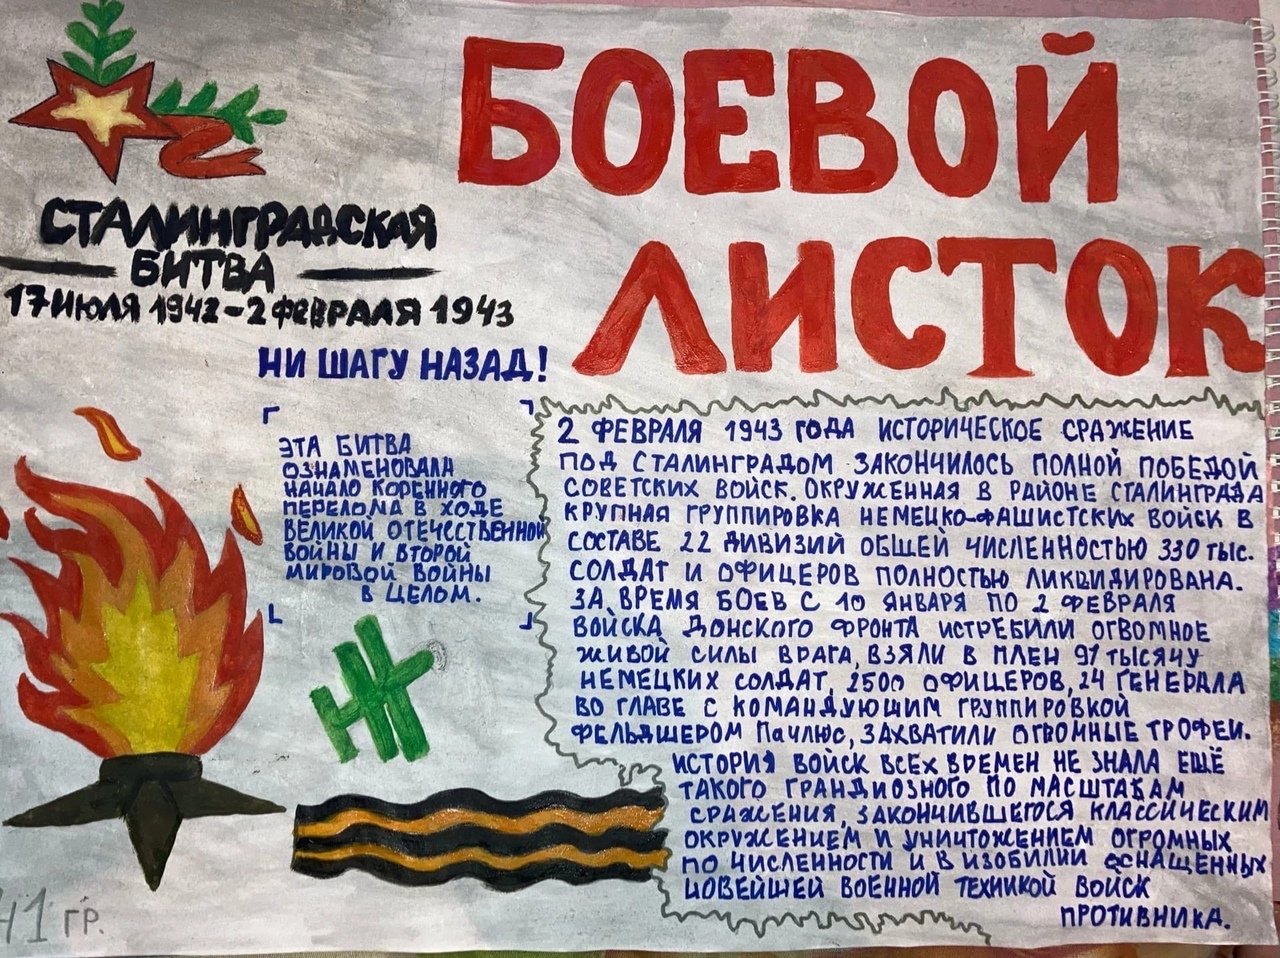 БОЕВОЙ
ЛИСТОК
СТАЛИНГРАДСКАЯ
БИТВА
17 ИЮЛЯ 1942 - 2 ФЕВРАЛЯ 1943
НИ ШАГУ НАЗАД!
ЭТА БИТВА
ОЗНАМЕНОВАЛА
НАЧАЛО КОРЕННОГО
ПЕРЕЛОМА В ХОДЕ
ВЕЛИКОЙ ОТЕЧЕСТВЕННОЙ
ВОЙНЫ И ВТОРОЙ
МИРОВОЙ ВОЙНЫ
В ЦЕЛОМ.
2 ФЕВРАЛЯ 1943 ГОДА ИСТОРИЧЕСКОЕ СРАЖЕНИЕ
ПОД СТАЛИНГРАДОМ ЗАКОНЧИЛОСЬ ПОЛНОЙ ПОБЕДОЙ
СОВЕТСКИХ ВОЙСК. ОКРУЖЕННАЯ В РАЙОНЕ СТАЛИНГРАДА
КРУПНАЯ ГРУППИРОВКА НЕМЕЦКО-ФАШИСТСКИХ ВОЙСК В
СОСТАВЕ 22 ДИВИЗИЙ ОБЩЕЙ ЧИСЛЕННОСТЬЮ 330 ТЫС.
СОЛДАТ И ОФИЦЕРОВ ПОЛНОСТЬЮ ЛИКВИДИРОВАНА.
ЗА ВРЕМЯ БОЕВ С 10 ЯНВАРЯ ПО 2 ФЕВРАЛЯ
ВОЙСКА ДОНСКОГО ФРОНТА ИСТРЕБИЛИ ОГРОМНОЕ
ЖИВОЙ СИЛЫ ВРАГА, ВЗЯЛИ В ПЛЕН 91 ТЫСЯЧУ
НЕМЕЦКИХ СОЛДАТ, 2500 ОФИЦЕРОВ, 24 ГЕНЕРАЛА
ВО ГЛАВЕ С КОМАНДУЮЩИМ ГРУППИРОВКОЙ
ФЕЛЬДШЕРОМ ПАУЛЮС, ЗАХВАТИЛИ ОГРОМНЫЕ ТРОФЕИ.
ИСТОРИЯ ВОЙСК ВСЕХ ВРЕМЕН НЕ ЗНАЛА ЕЩЁ
ТАКОГО ГРАНДИОЗНОГО ПО МАСШТАБАМ
СРАЖЕНИЯ, ЗАКОНЧИВШЕГОСЯ КЛАССИЧЕСКИМ
ОКРУЖЕНИЕМ И УНИЧТОЖЕНИЕМ ОГРОМНЫХ
ПО ЧИСЛЕННОСТИ И В ИЗОБИЛИИ ОСНАЩЕННЫХ
НОВЕЙШЕЙ ВОЕННОЙ ТЕХНИКОЙ ВОЙСК
ПРОТИВНИКА.
ГР.